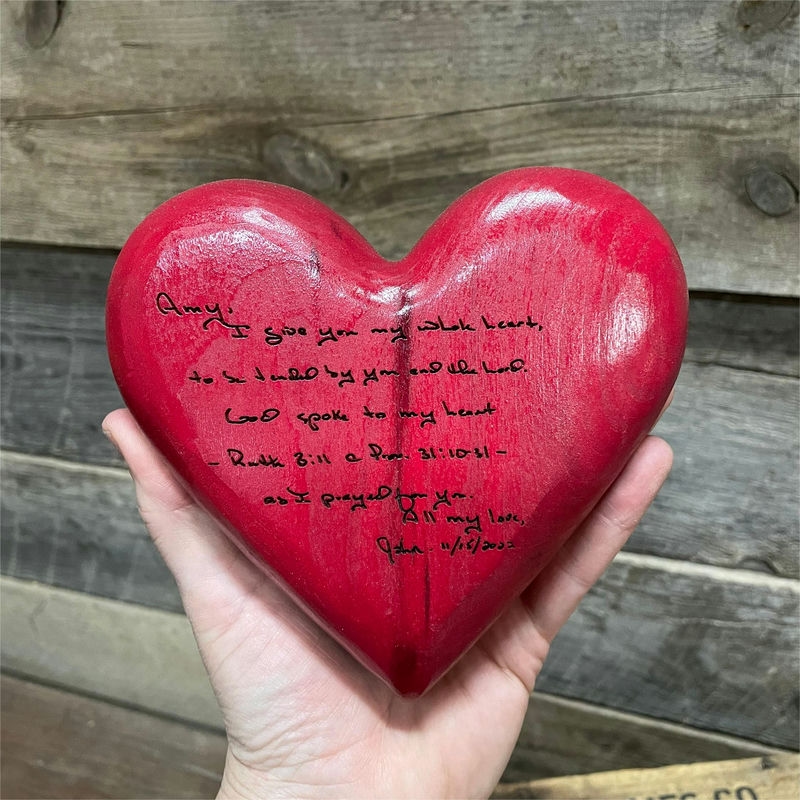 Amy,
I give you my whole heart,
to be tended by you and the Lord.
God spoke to my heart
- Ruth 3:11 & Prov. 31:10-31 -
as I prayed for you.
All my love,
John - 11/15/2022